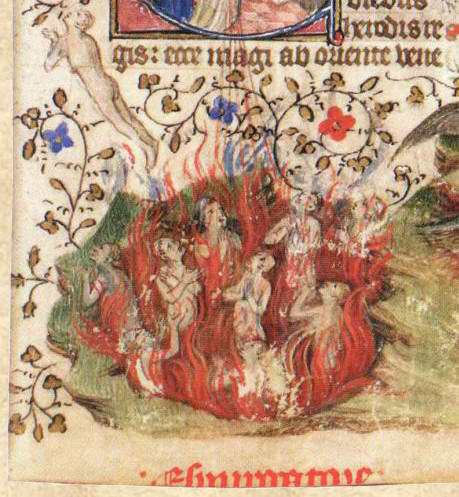 diebus
herodis re
gis: ecce magi ab oriente vene